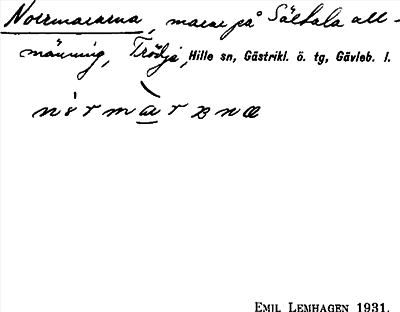 Norrmararna, marar på Sältala all-
männing, Trödje, Hille sn, Gästrikl. ö. tg, Gävleb. l.
EMIL LEMHAGEN 1931.